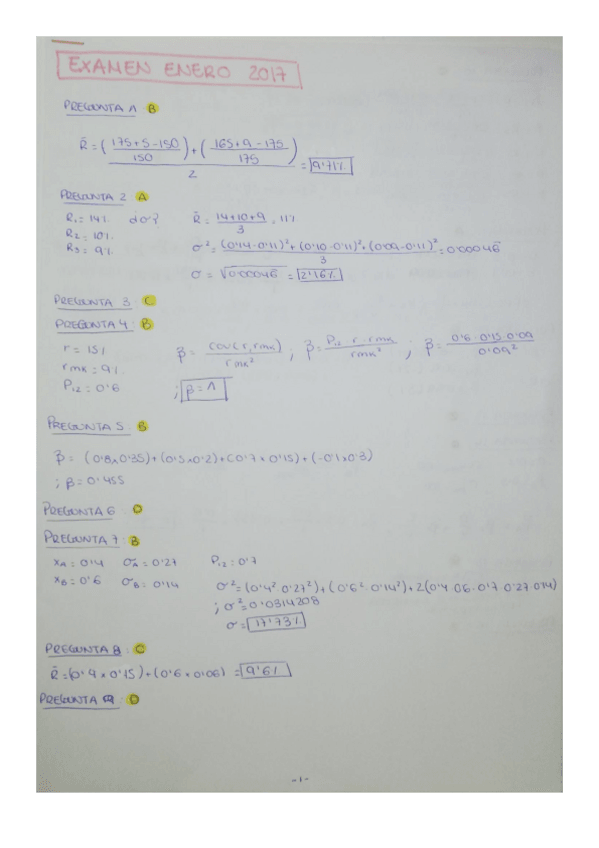 EXAMEN ENERO 2017
PREGUNTA 1 B
R̄ = ((175+5-150)/150) + ((165+9-175)/175) / 2 = 9'71%
PREGUNTA 2 A
R₁= 14% do? R̄ = (14+10+9)/3 = 11%
R₂= 10%. σ² = ((0'14-0'11)²+(0'10-0'11)²+(0'09-0'11)²)/3 = 0'00046
R₃= 9% σ = √0'00046 = 2'16%
PREGUNTA 3 : C
PREGUNTA 4 : B
r = 15% β = cov(r,rmk)/rmk² ; β = P₁₂ · r · rmk/rmk² ; β = 0'6 · 0'15 · 0'09/0'09²
rmk = 9%
P₁₂ = 0'6 ; β = 1
PREGUNTA 5 : B
β = (0'8x0'35)+(0'5x0'2)+(0'7x0'15)+(-0'1x0'3)
; β = 0'455
PREGUNTA 6 : D
PREGUNTA 7 : B
xA = 0'4 σA = 0'27 P₁₂ = 0'7
xB = 0'6 σB = 0'14 σ² = (0'4² · 0'27²)+(0'6² · 0'14²)+2(0'4 · 0'6 · 0'7 · 0'27 · 0'14)
; σ² = 0'0314208
σ = 17'73%
PREGUNTA 8 : C
R̄ = (0'4 x 0'15)+(0'6 x 0'06) = 9'6%
PREGUNTA 9 : D
-1-